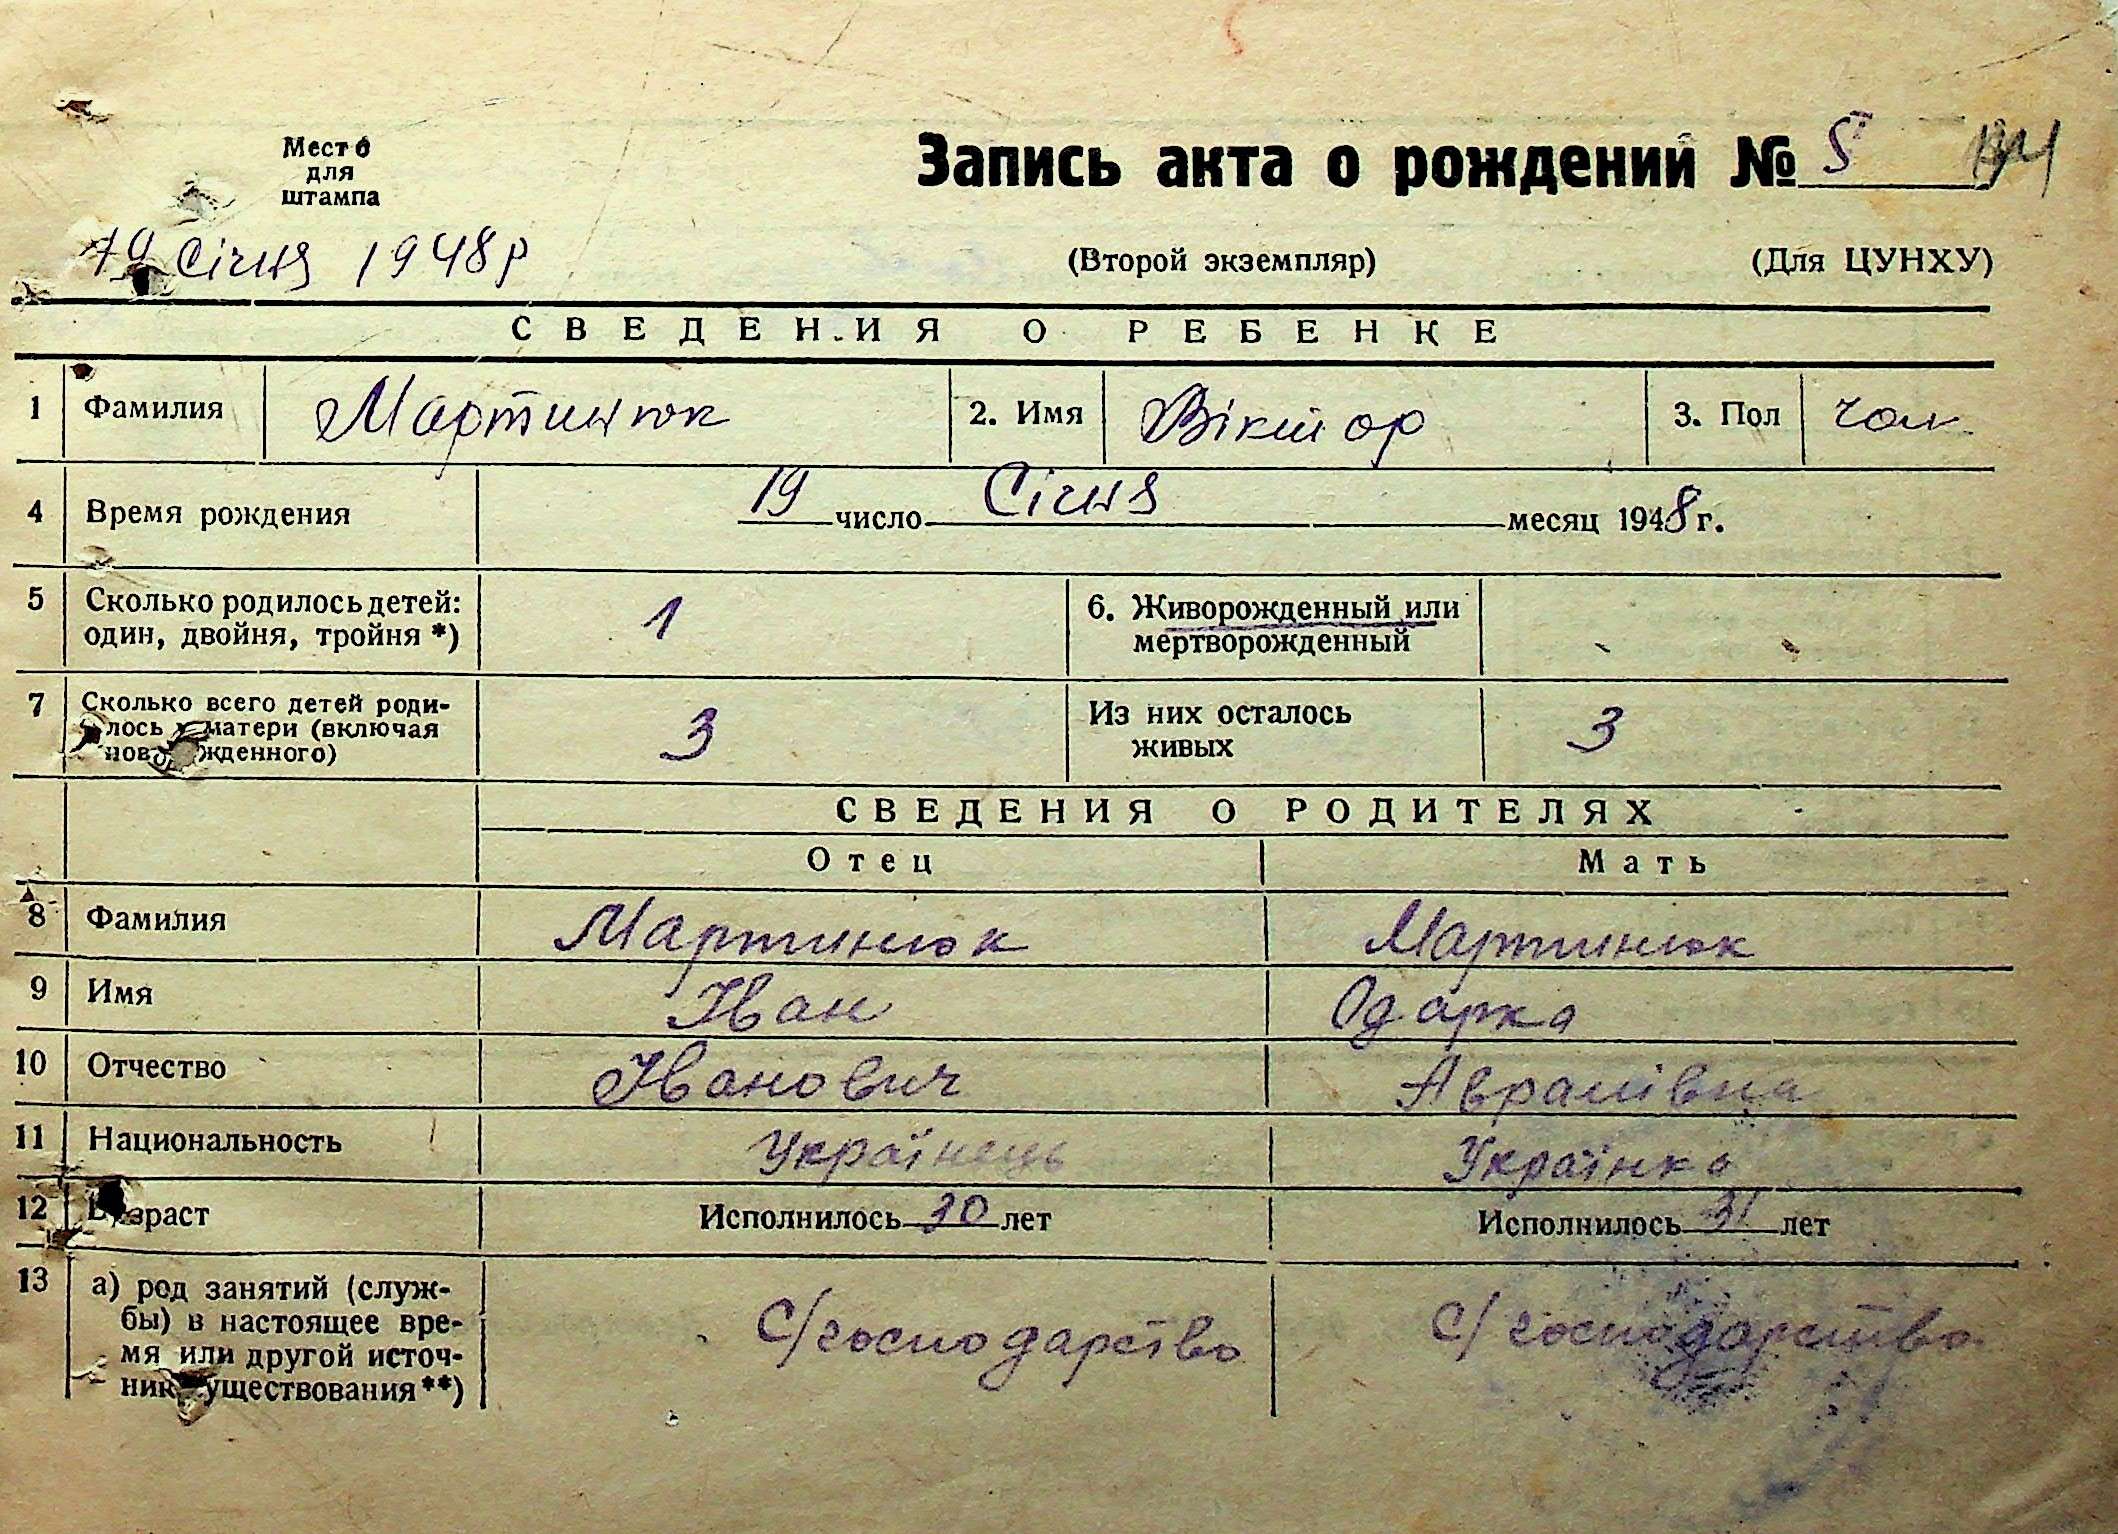 Место
для
штампа
Запись акта о рождении № 5
19 Січня 1948 р
(Второй экземпляр) (Для ЦУНХУ)
СВЕДЕНИЯ О РЕБЕНКЕ
1 Фамилия Мартинюк 2. Имя Віктор 3. Пол чол
4 Время рождения 19 число Січня месяц 1948 г.
5 Сколько родилось детей: 1 6. Живорожденный или
один, двойня, тройня *) мертворожденный
7 Сколько всего детей роди- 3 Из них осталось 3
лось у матери (включая живых
новорожденного)
СВЕДЕНИЯ О РОДИТЕЛЯХ
Отец Мать
8 Фамилия Мартинюк Мартинюк
9 Имя Іван Одарка
10 Отчество Іванович Аврамівна
11 Национальность Українець Українка
12 Возраст Исполнилось 30 лет Исполнилось 31 лет
13 а) род занятий (служ- С/господарство С/господарство
бы) в настоящее вре-
мя или другой источ-
ник существования **)